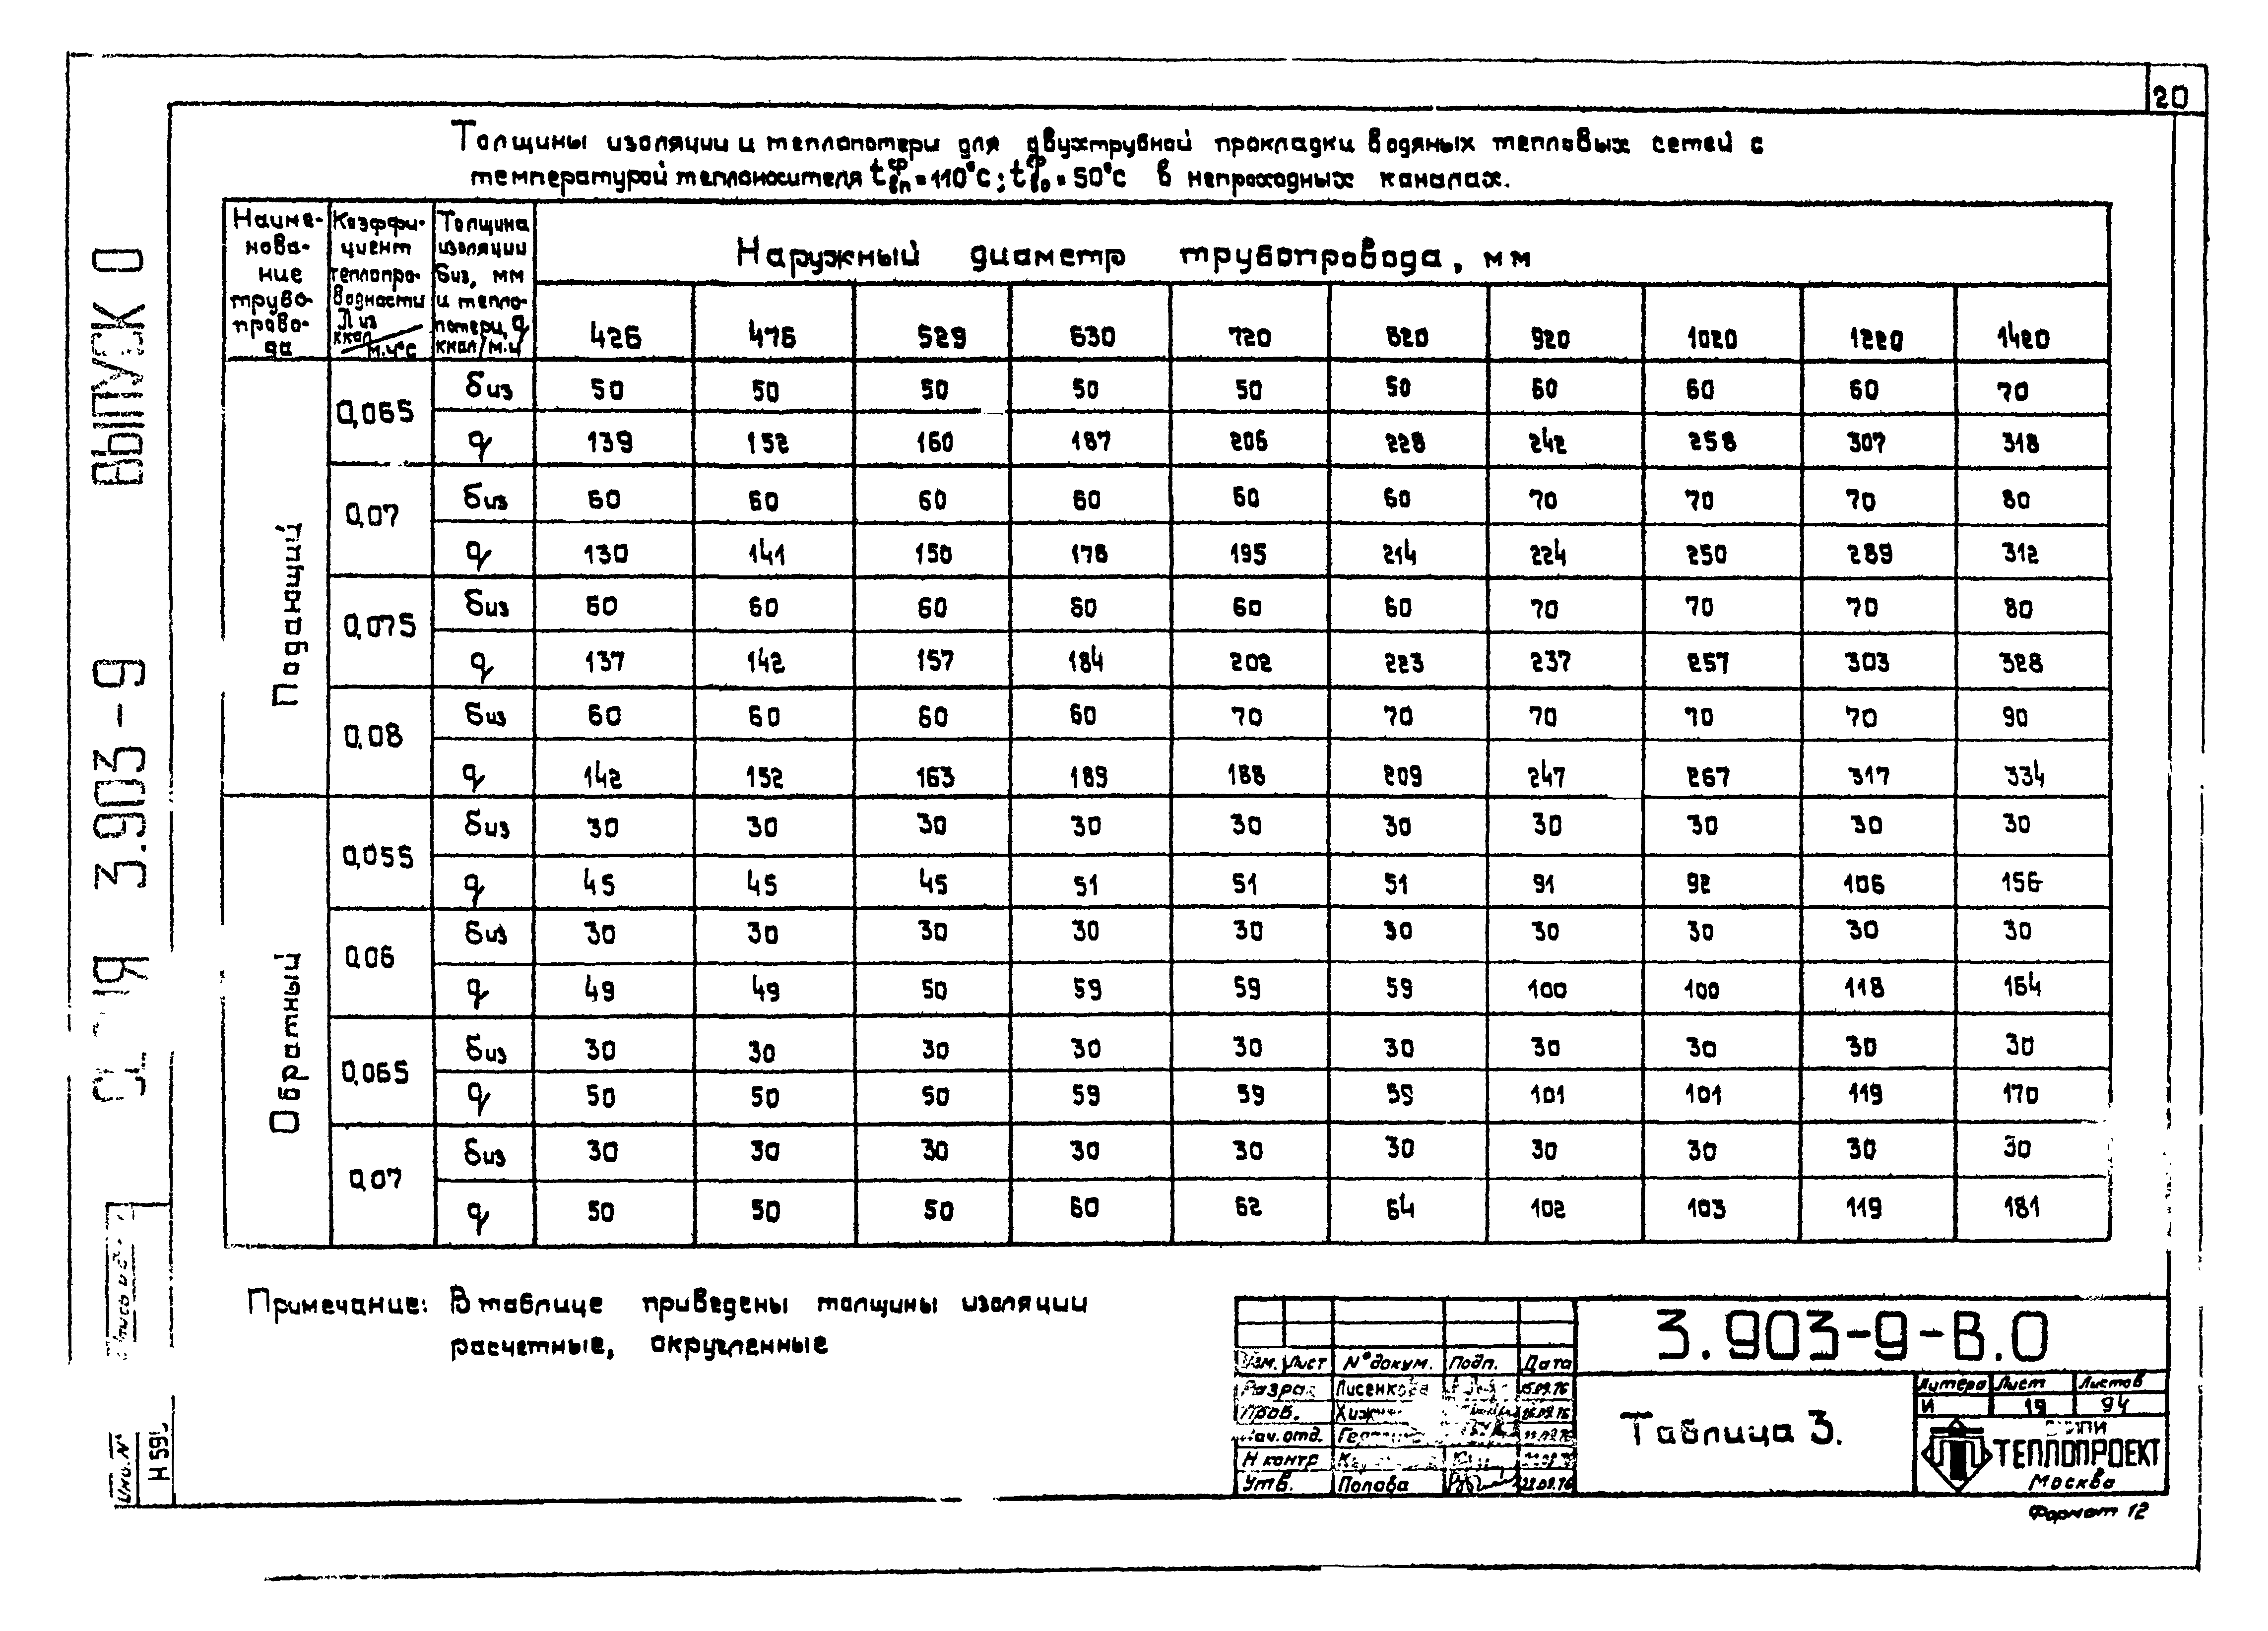 20
Толщины изоляции и теплопотери для двухтрубной прокладки водяных тепловых сетей с
температурой теплоносителя t вп ср = 110°С; t во ср = 50°С в непроходных каналах.
Наиме-
нова-
ние
трубо-
прово-
да
Коэффи-
циент
теплопро-
водности
λ из
ккал/м.ч°С
Толщина
изоляции
биз, мм
и тепло-
потери, q
ккал/м.ч
Наружный диаметр трубопровода, мм
426 476 529 630 720 820 920 1020 1220 1420
Подающий
0,065 биз 50 50 50 50 50 50 60 60 60 70
q 139 152 160 187 206 228 242 258 307 318
0,07 биз 60 60 60 60 60 60 70 70 70 80
q 130 141 150 178 195 214 224 250 289 312
0,075 биз 60 60 60 60 60 60 70 70 70 80
q 137 142 157 184 202 223 237 257 303 328
0,08 биз 60 60 60 60 70 70 70 70 70 90
q 142 152 163 189 188 209 247 267 317 334
Обратный
0,055 биз 30 30 30 30 30 30 30 30 30 30
q 45 45 45 51 51 51 91 92 106 156
0,06 биз 30 30 30 30 30 30 30 30 30 30
q 49 49 50 59 59 59 100 100 118 164
0,065 биз 30 30 30 30 30 30 30 30 30 30
q 50 50 50 59 59 59 101 101 119 170
0,07 биз 30 30 30 30 30 30 30 30 30 30
q 50 50 50 60 62 64 102 103 119 181
Примечание: В таблице приведены толщины изоляции
расчетные, округленные
3.903-9 ВЫПУСК 0
Инв.N°
3.903-9-В.0
Изм. Лист N° докум. Подп. Дата
Лисенкова 15.09.76
Пров.
Нач.отд.
Н контр
Утв. Попова 22.09.76
Таблица 3.
Литера Лист Листов
И 19 94
ТЕПЛОПРОЕКТ
Москва
Формат 12